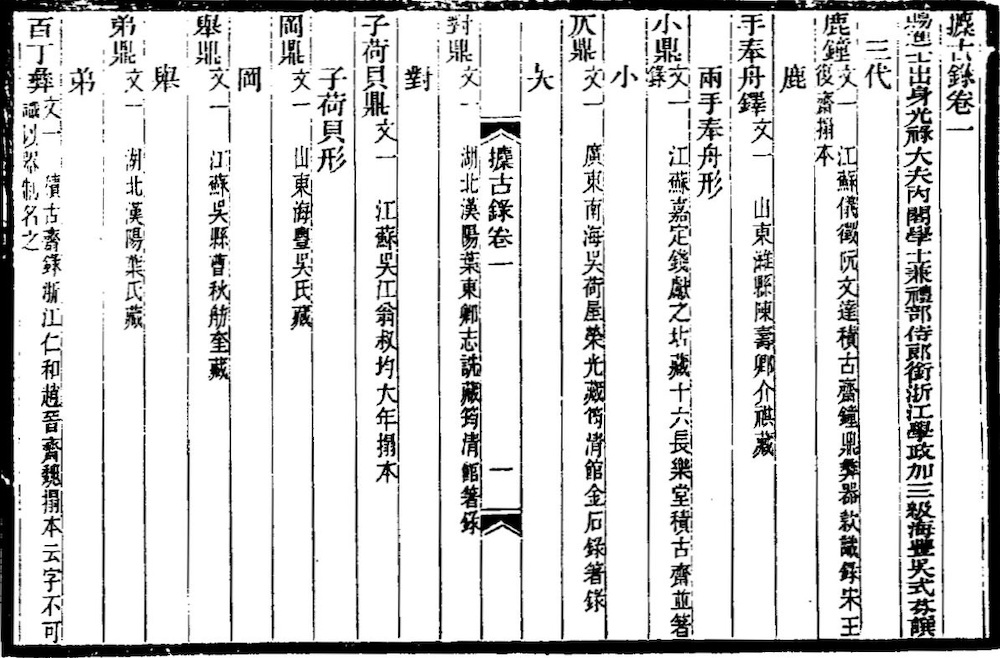 攈古錄卷一
賜進士出身光祿大夫內閣學士兼禮部侍郎銜浙江學政加三級海豐吳式芬饌
三代
鹿鐘文一 江蘇儀徵阮文達積古齋鐘鼎彝器款識錄宋王
後齋搨本
鹿
手奉舟鐸文一 山東濰縣陳壽卿介祺藏
兩手奉舟形
小鼎文一 江蘇嘉定錢獻之坫藏十六長樂堂積古齋並箸
錄
小
仄鼎文一 廣東南海吳荷屋榮光藏筠清館金石錄箸錄
夨
攈古錄卷一
一
對鼎文一 湖北漢陽葉東卿志詵藏筠清館箸錄
對
子荷貝鼎文一 江蘇吳江翁叔均大年搨本
子荷貝形
岡鼎文一 山東海豐吳氏藏
岡
舉鼎文一 江蘇吳縣曹秋舫奎藏
舉
弟鼎文一 湖北漢陽葉氏藏
弟
百丁彝文一 積古齋錄浙江仁和趙晉齋魏搨本云字不可
識以器制名之